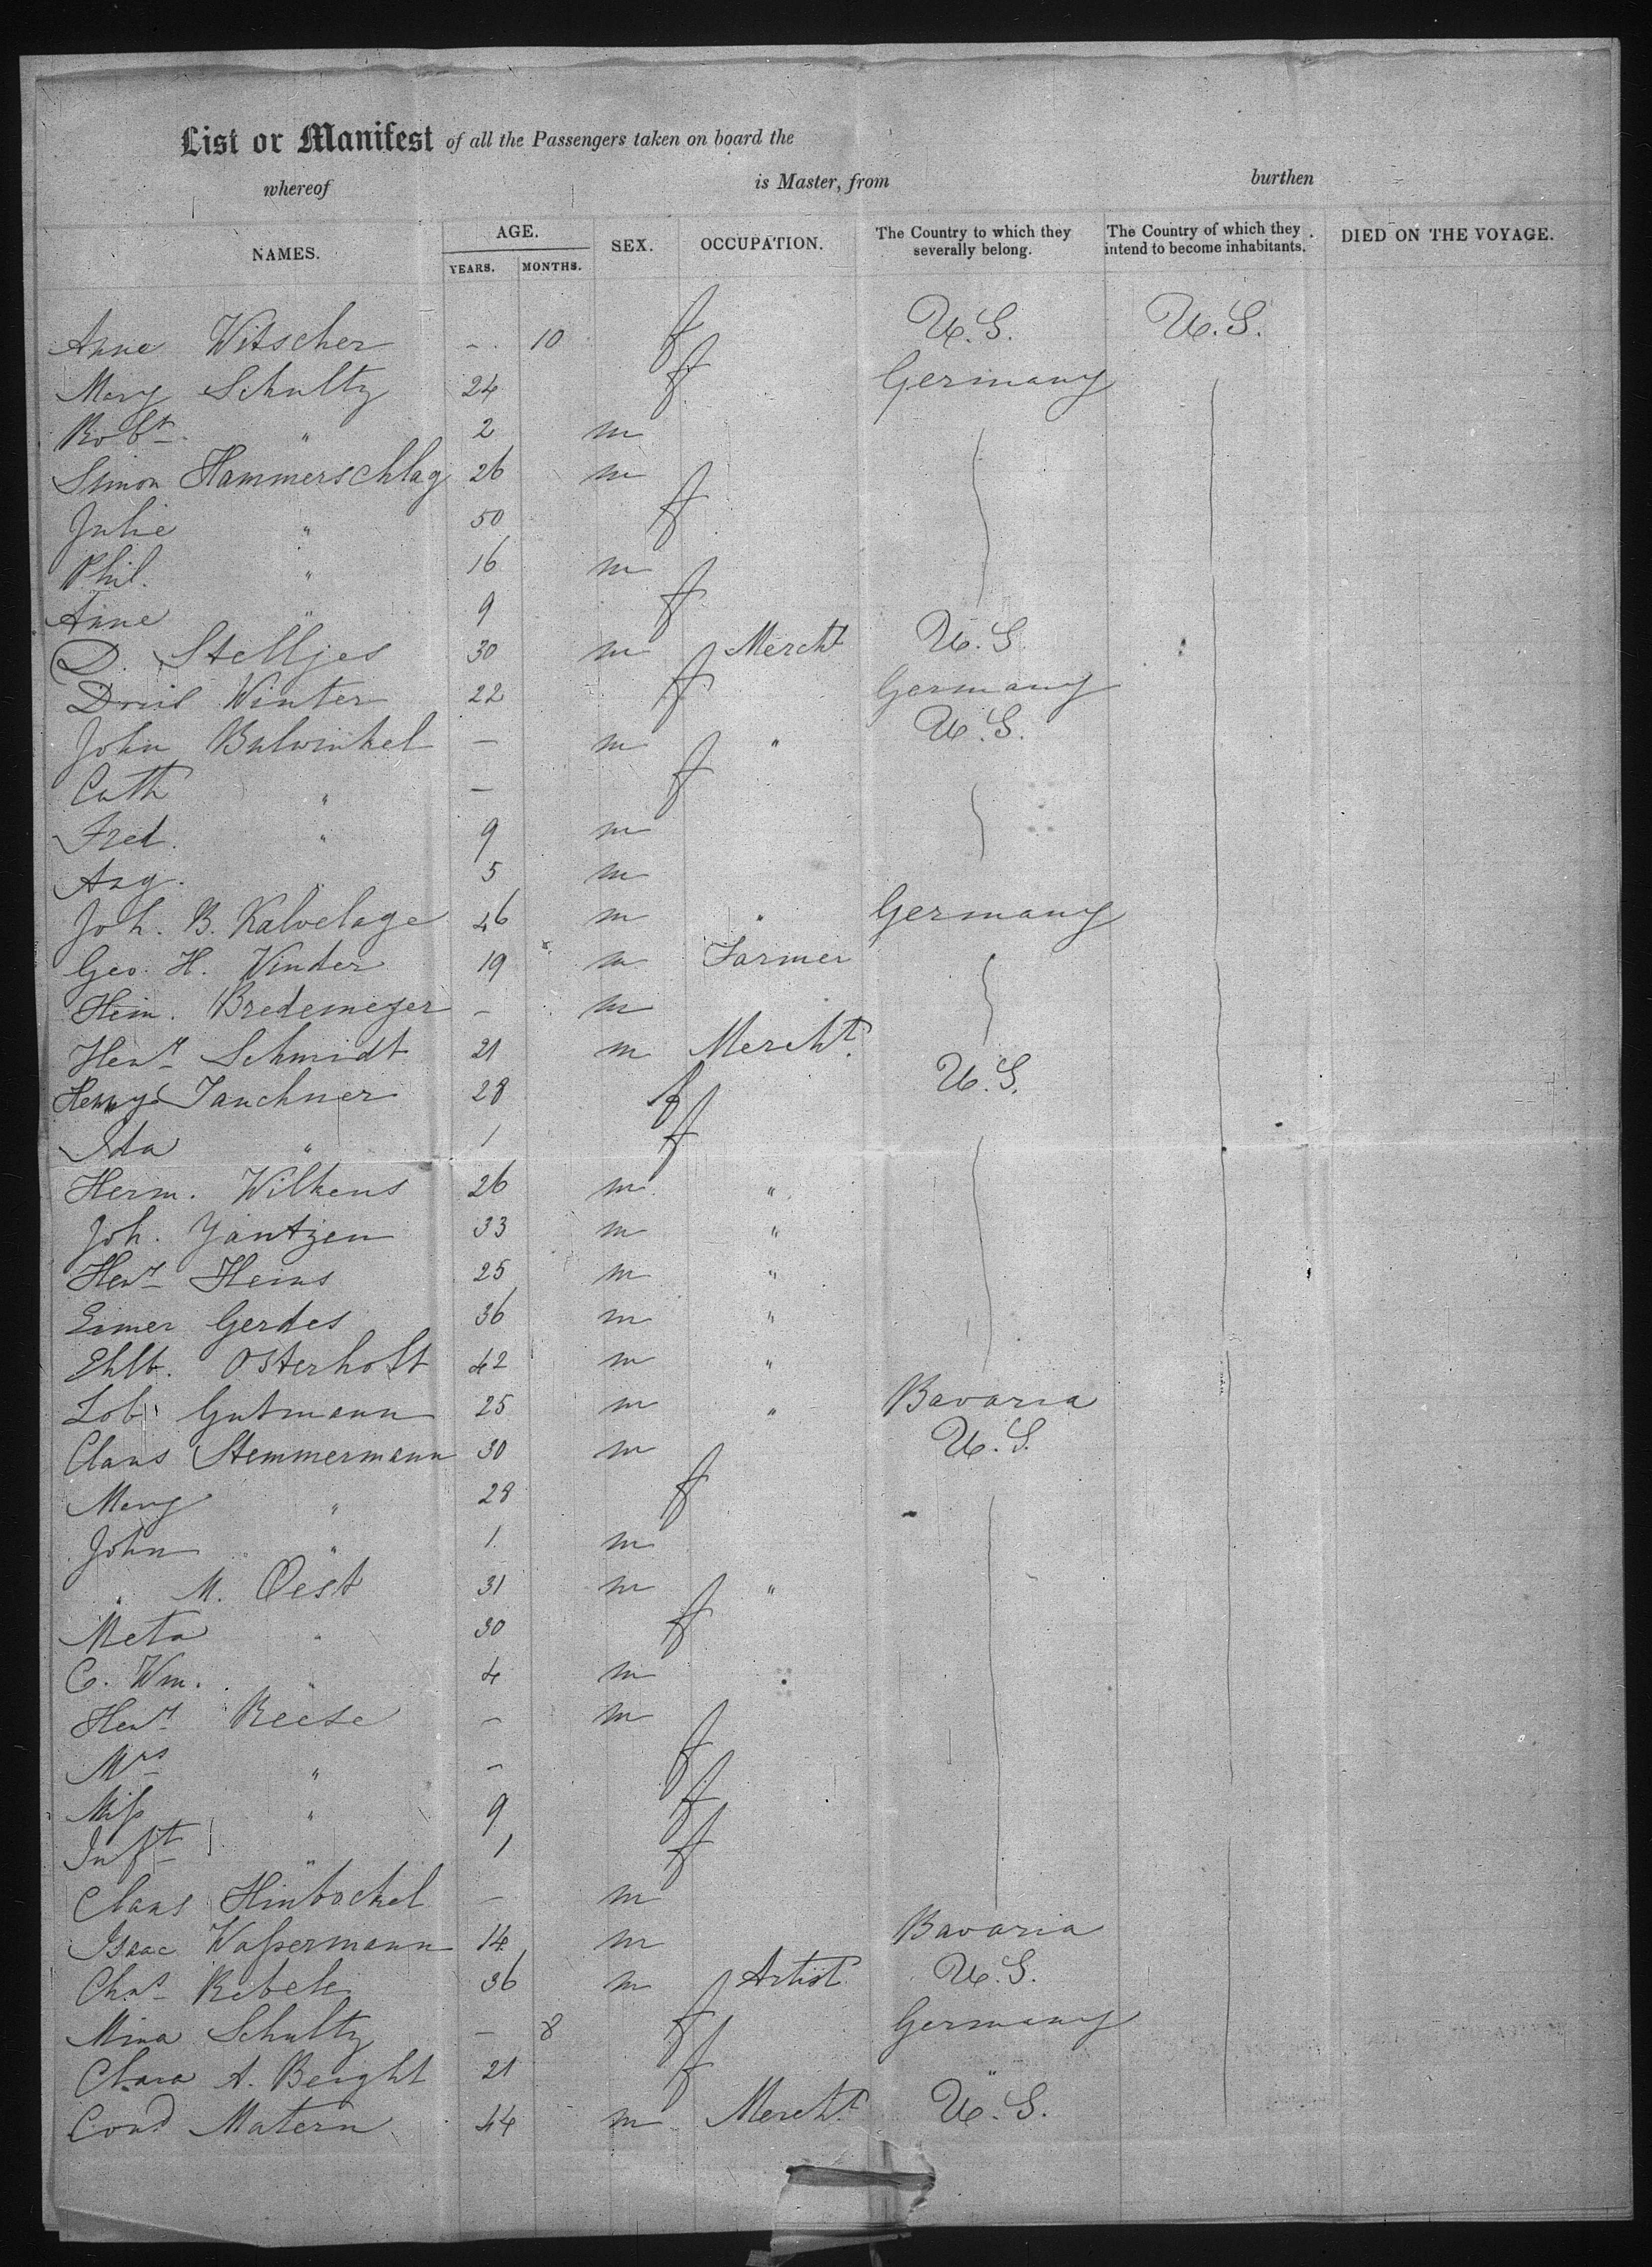 List or Manifest of all the Passengers taken on board the
whereof is Master, from burthen
NAMES. AGE. YEARS. MONTHS. SEX. OCCUPATION. The Country to which they severally belong. The Country of which they intend to become inhabitants. DIED ON THE VOYAGE.
Anne Witscher - 10 f U.S. U.S.
Mary Schultz 24 f Germany
Robt. " 2 m
Simon Hammerschlag 26 m
Julie " 50 f
Phil. " 16 m
Anne " 9 f
D. Stelljes 30 m Mercht U.S.
Winter 22 f Germany
John Bulwinkel - m " U.S.
Cath " - f
Fred. " 9 m
Aug. " 5 m
Joh. B. Kalvelage 46 m " Germany
Geo. H. Vinder 19 m Farmer
Hein. Bredemeyer - m
Heny Schmidt 21 m Mercht.
Henny Tauchner 28 f U.S.
Ida " 1 f
Herm. Wilkens 26 m "
Joh. Jantzen 33 m "
Heny Heins 25 m "
Eimer Gerdes 36 m "
Ehlb. Osterholt 42 m "
Lob. Gutmann 25 m " Bavaria
Claus Stemmermann 30 m U.S.
Mary " 28 f
John " 1 m
" M. Oest 31 m "
Meta " 30 f
C. Wm. " 4 m
Heny Reese - m
Mrs " - f
Miss " 9 f
Inft " 1 f
Claus Hinbockel - m
Isaac Wassermann 14 m Bavaria
Chas. Rebele 36 m Artist U.S.
Mina Schultz - 8 f Germany
Clara A. Beight 21 f "
Cond Matern 44 m Mercht. U.S.